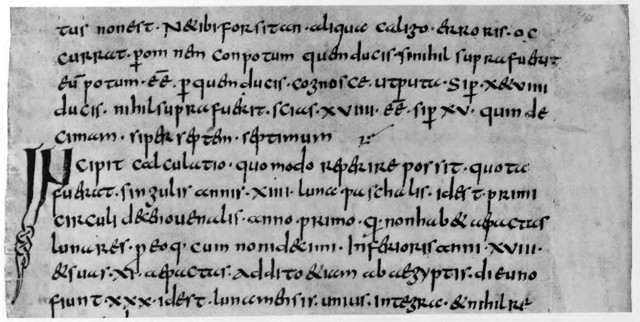 tus non est · Ne ibi forsitan · aliqua caligo · erroris · oc
currat · p om nem conpotum quem ducis · si nihil supra fuerit
eũ potum · eẽ · p quen ducis · cognosce ut puta · Si p · xe& viiii
ducis · nihil supra fuerit · scias · xviiii · eẽ · si p xv · quin de
cimam · si per septem · septimum
IN cipit calculatio · quomodo reperire possit · quota
fuerat · singulis annis · xiiii · luna paschalis · id est primi
circuli de&novenalis · anno primo · q non hab& aepactas
lunares · p eo q · cum noni de&imi · Inferioris anni · xviii ·
&suas · xi · aepactas · addito &iam ab aegyptiis · die uno
fiunt · xxx · id est · luna mensis · unius · integrae · &nihil re